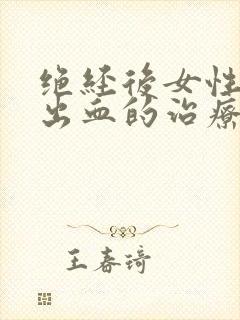 绝经後女性
出血的治療
王春琦